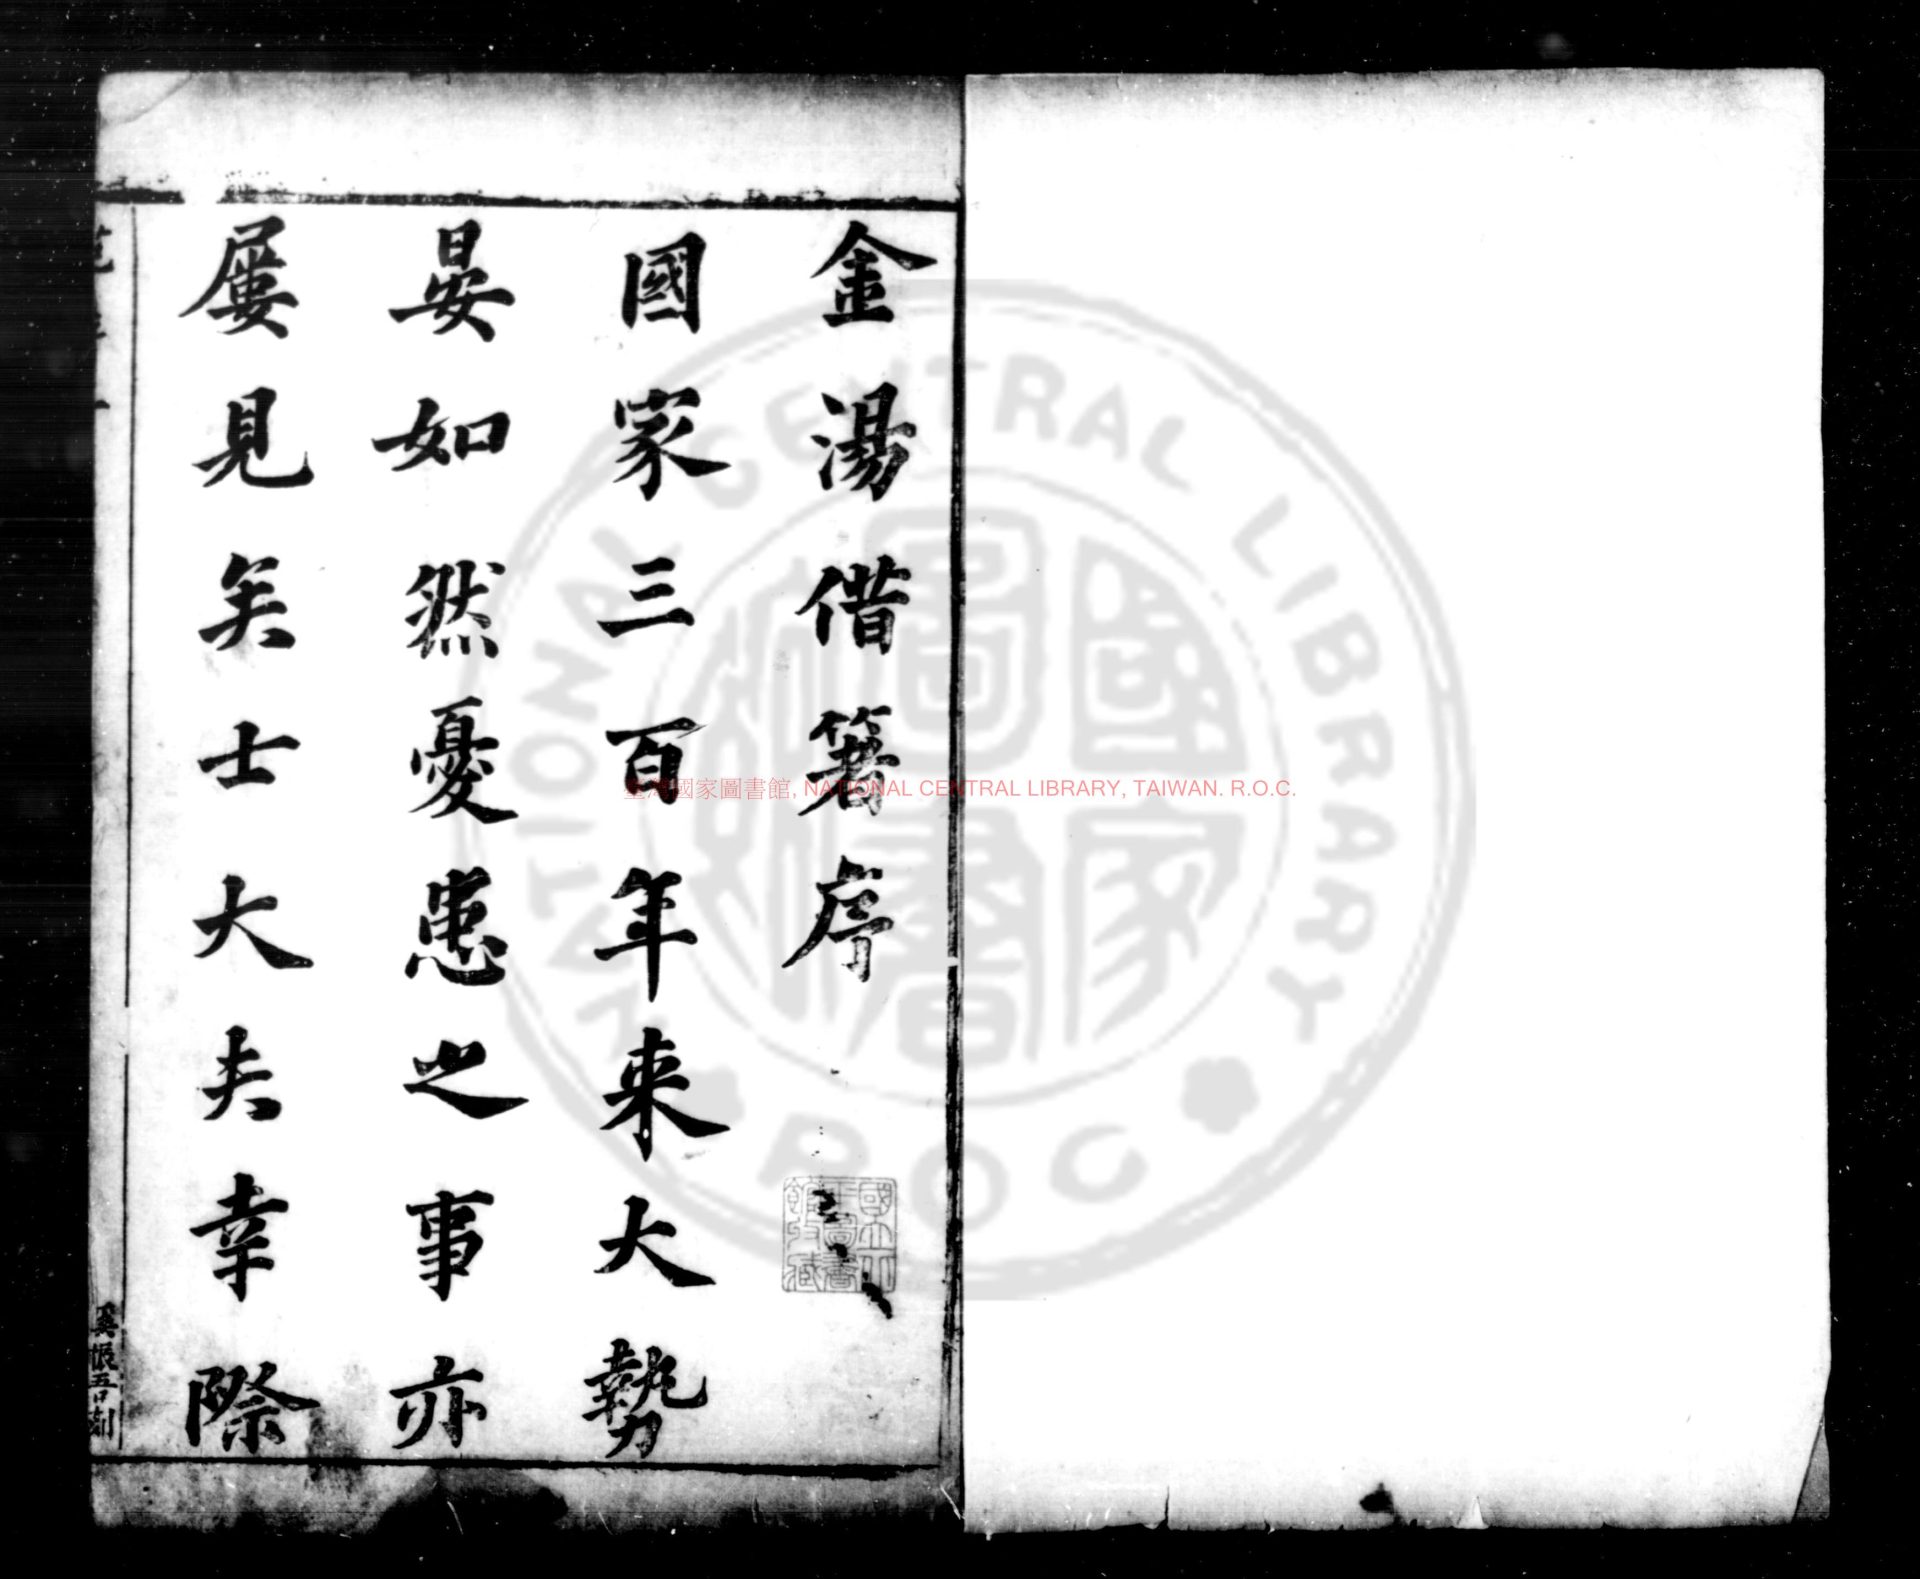 金湯借箸序
國家三百年来大勢
晏如然憂患之事亦
屢見矣士大夫幸際
國立北
平圖書
館收藏
臺灣國家圖書館, NATIONAL CENTRAL LIBRARY, TAIWAN. R.O.C.
NATIONAL CENTRAL LIBRARY
ROC
國家圖書館